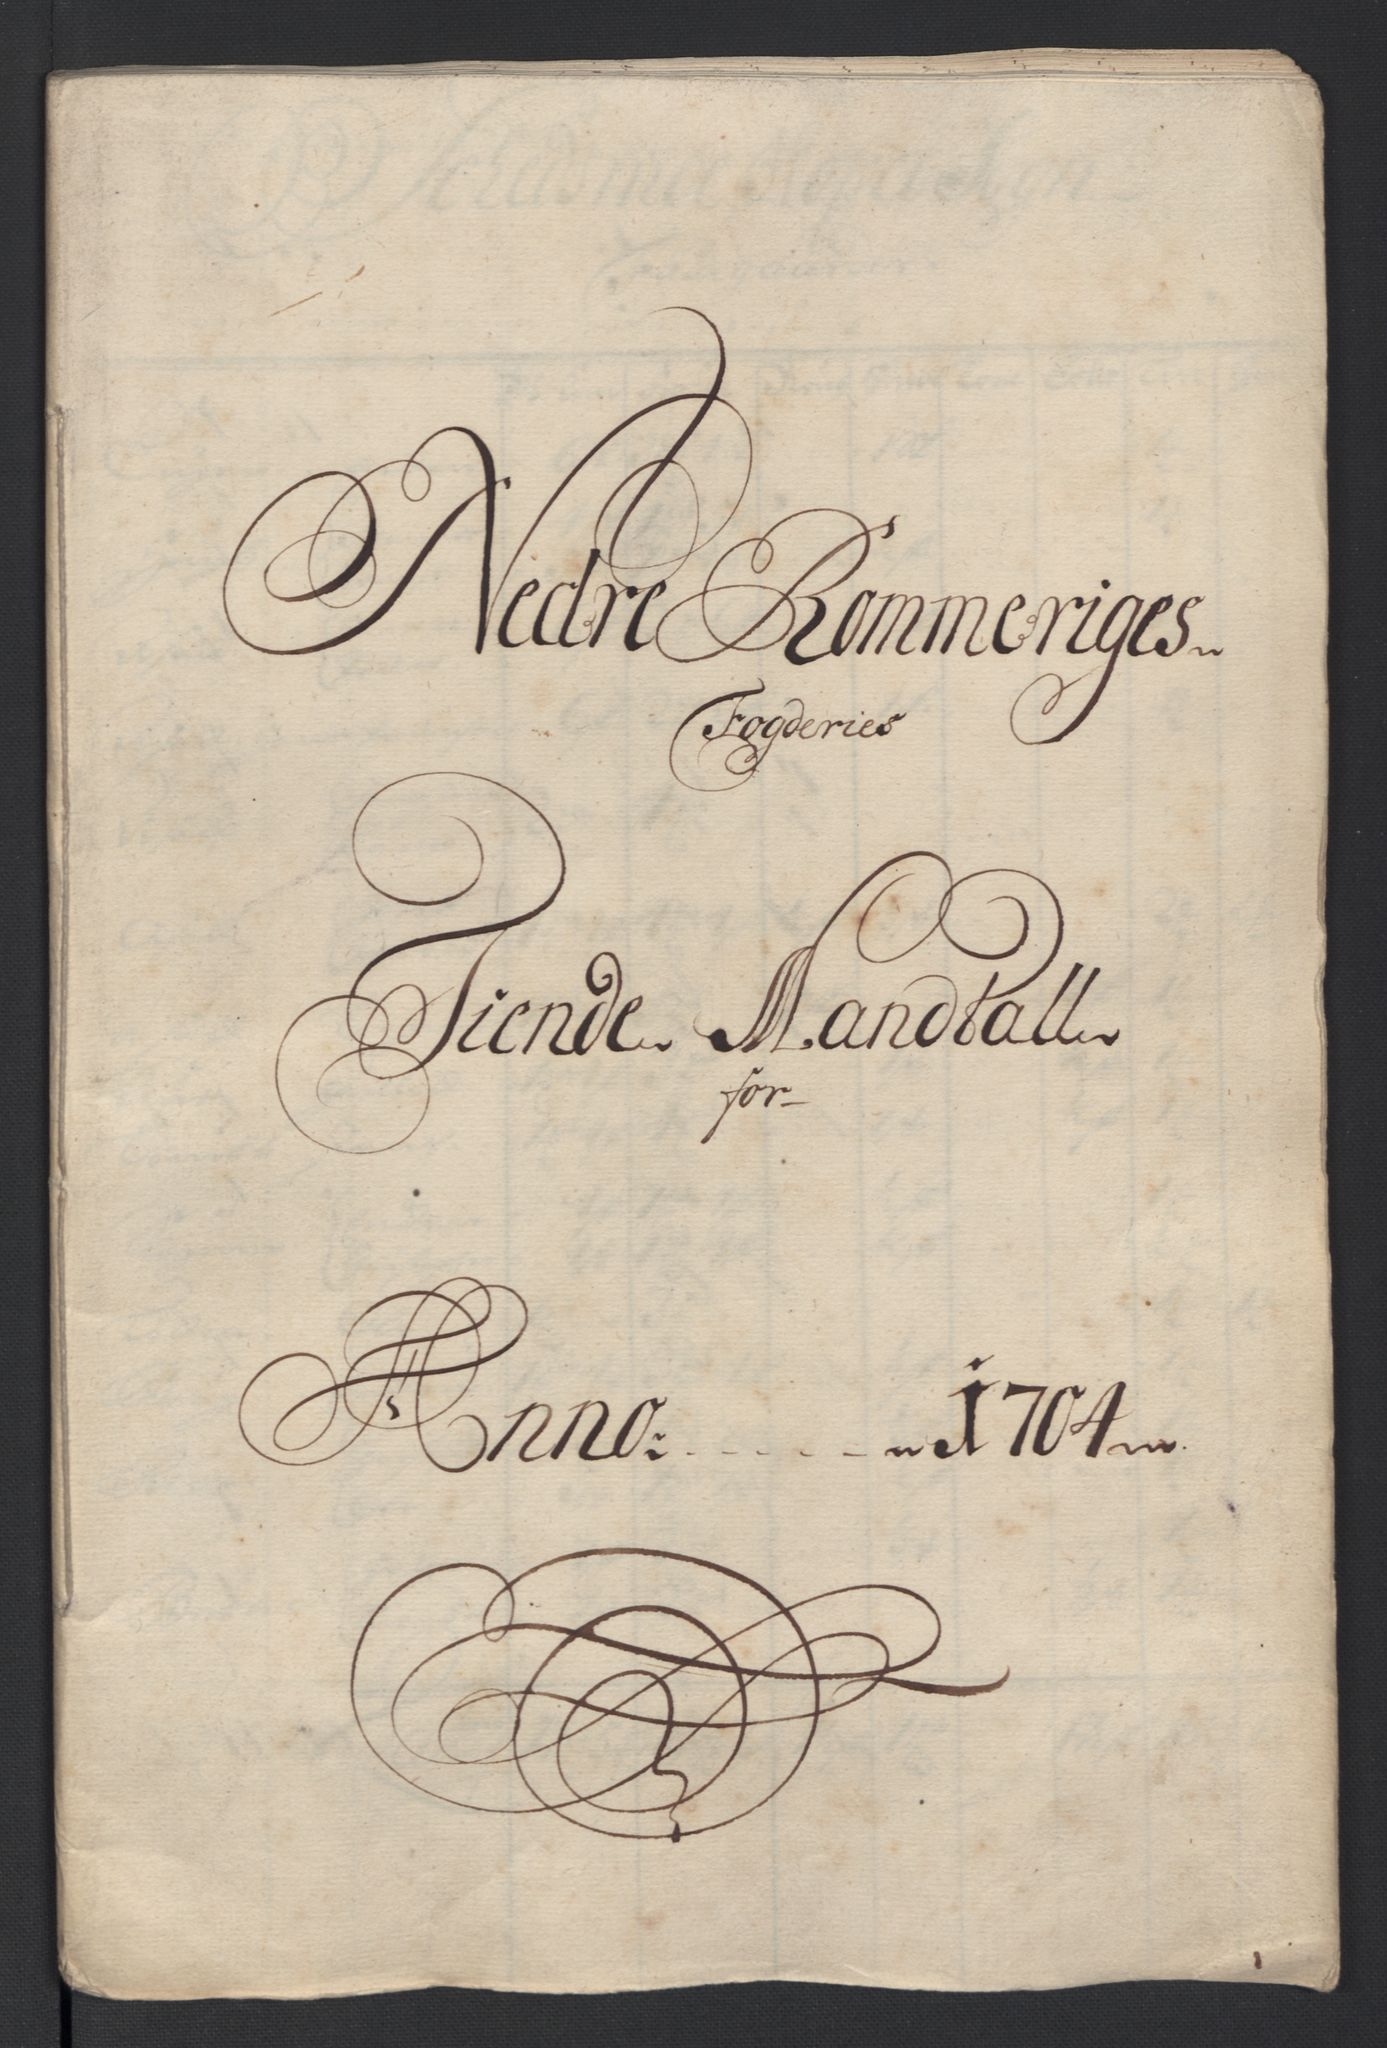 Nedre Rommeriges
Fogderies
Tiende Mandtall
for
Anno: 1704